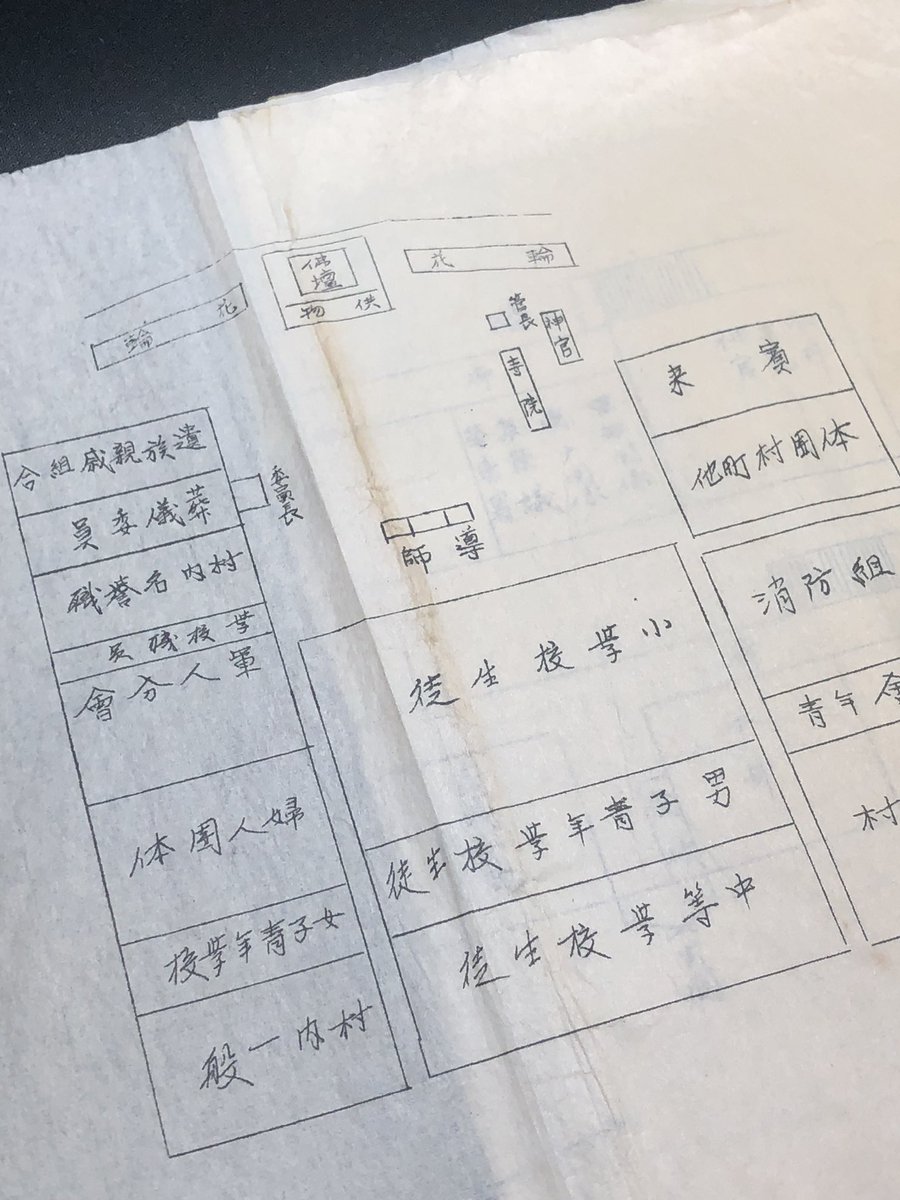 佛壇
供物
花輪
花輪
管長
神官
寺院
導師
来賓
他町村団体
消防組
青年
村
遺族親戚組合
葬儀委員
委員長
村内名誉職
学校職員
軍人分會
婦人団体
女子青年学校
村内一般
小学校生徒
男子青年学校生徒
中等学校生徒